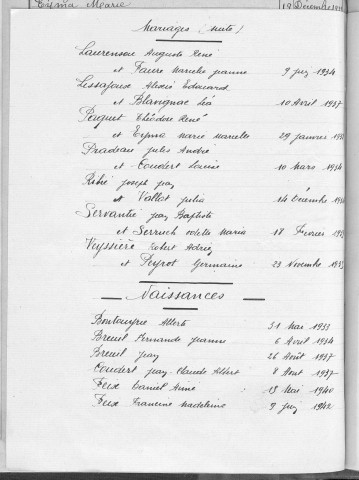 Eyma Marie 19 Décembre 19
Mariages (suite)
Laurenson Auguste René
et Faure Marcelle Jeanne 9 juin 1934
Lessajoux Alexis Edouard
et Blangnac Léa 10 Avril 1937
Paquet Théodore René
et Eyma Marie Marcelle 29 janvier 193
Pradeau Jules André
et Coudert Louise 10 Mars 1934
Ribié Joseph Jean
et Vallat Julia 14 Décembre 19
Servantie Jean Baptiste
et Serruch Odette Maria 18 Février 193
Veyssière Robert Adrien
et Peyrot Germaine 23 Novembre 193
Naissances
Bontaugne Alberte 31 Mai 1933
Breuil Fernande Jeanne 6 Avril 1934
Breuil Jean 26 Août 1937
Coudert Jean-Claude Albert 8 Août 1937
Feix Daniel Aimé 13 Mai 1940
Feix Francine Madeleine 9 juin 1942